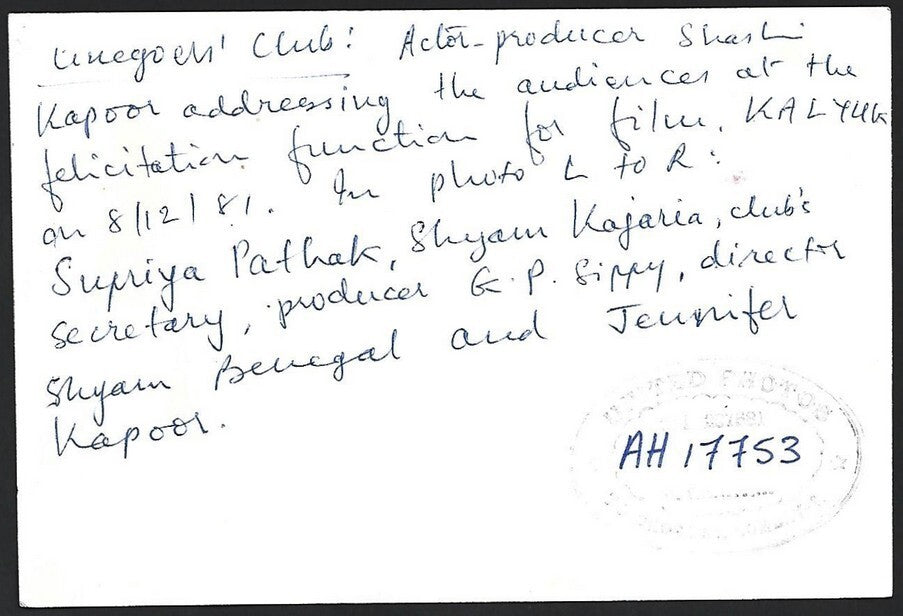 Cinegoers' Club: Actor-producer Shashi
Kapoor addressing the audiences at the
felicitation function for film, KALYUK
on 8/12/81. In photo L to R:
Supriya Pathak, Shyam Kajaria, club's
secretary, producer G.P. Sippy, director
Shyam Benegal and Jennifer
Kapoor.
AH 17753